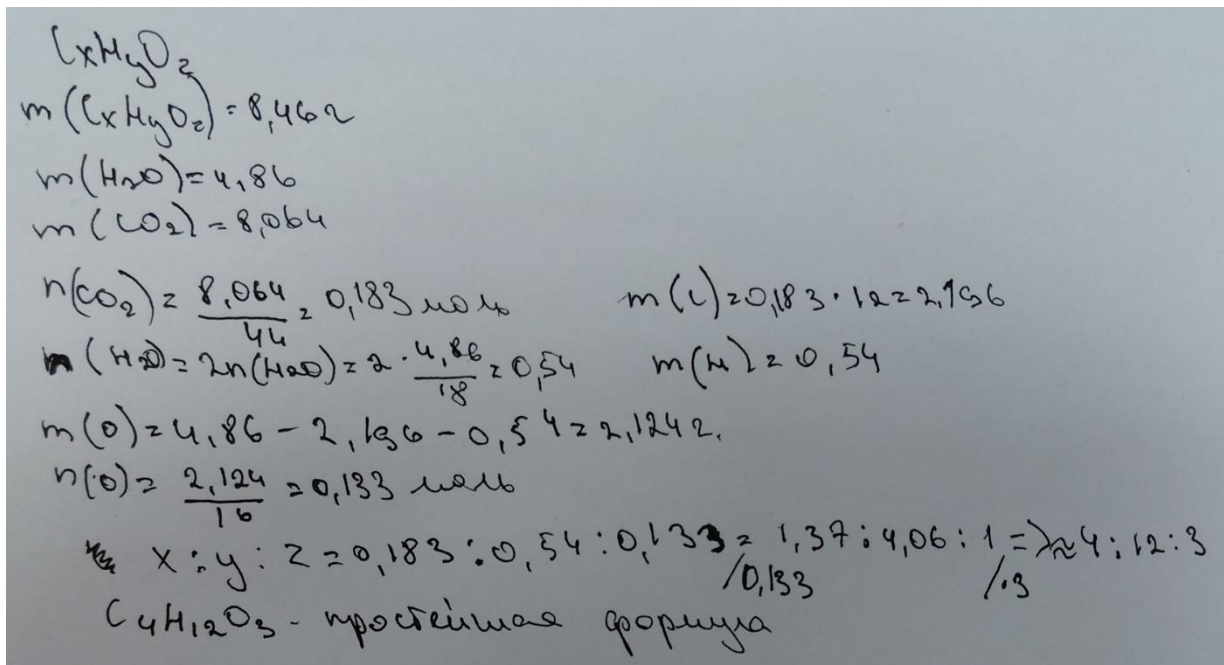 CxHyOz
m(CxHyOz)=8,46г
m(H2O)=4,86
m(CO2)=8,064
n(CO2)= 8,064/44 = 0,183 моль m(C)=0,183·12=2,196
n(H2O)=2n(H2O)=2·4,86/18=0,54 m(H)=0,54
m(O)=4,86-2,196-0,54=2,124г.
n(O)= 2,124/16 =0,133 моль
x:y:z=0,183:0,54:0,133 = 1,37:4,06:1 =>≈4:12:3
/0,133 /·3
C4H12O3 - простейшая формула